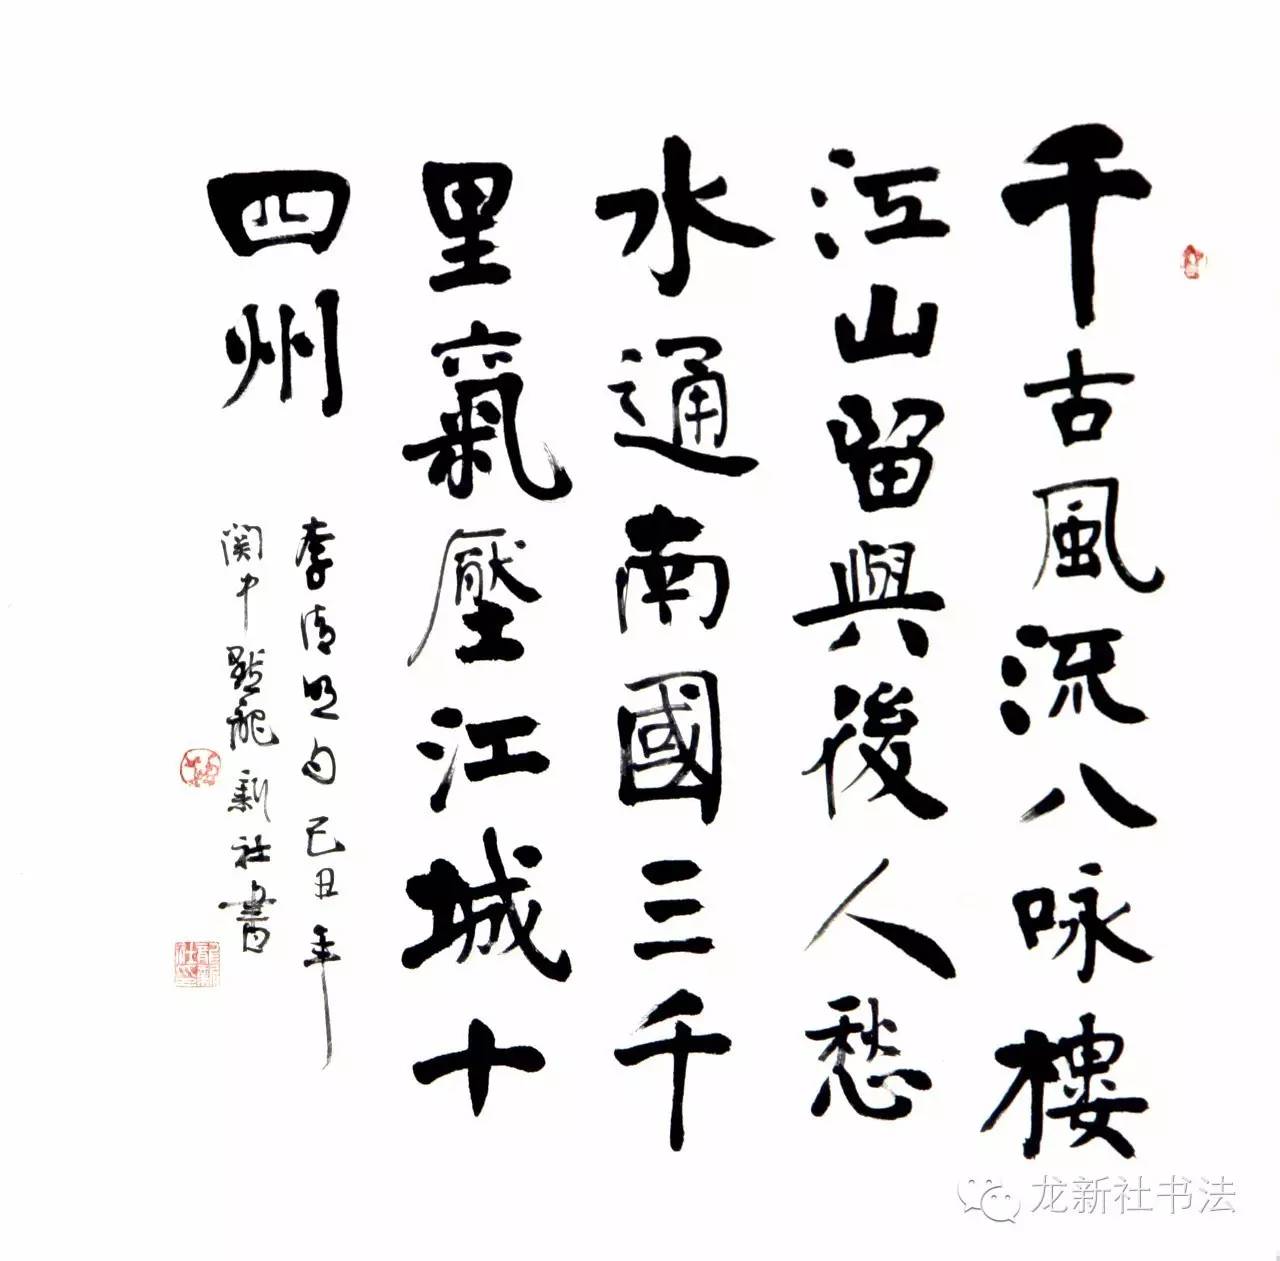 千古風流八咏樓
江山留與後人愁
水通南國三千
里氣壓江城十
四州
李清照句己丑年
関中點龍新社書
龙新社书法